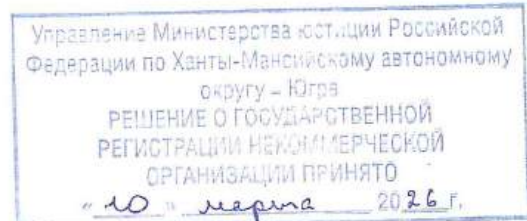 Управление Министерства юстиции Российской
Федерации по Ханты-Мансийскому автономному
округу – Югре
РЕШЕНИЕ О ГОСУДАРСТВЕННОЙ
РЕГИСТРАЦИИ НЕКОММЕРЧЕСКОЙ
ОРГАНИЗАЦИИ ПРИНЯТО
« 10 » марта 2026 г.